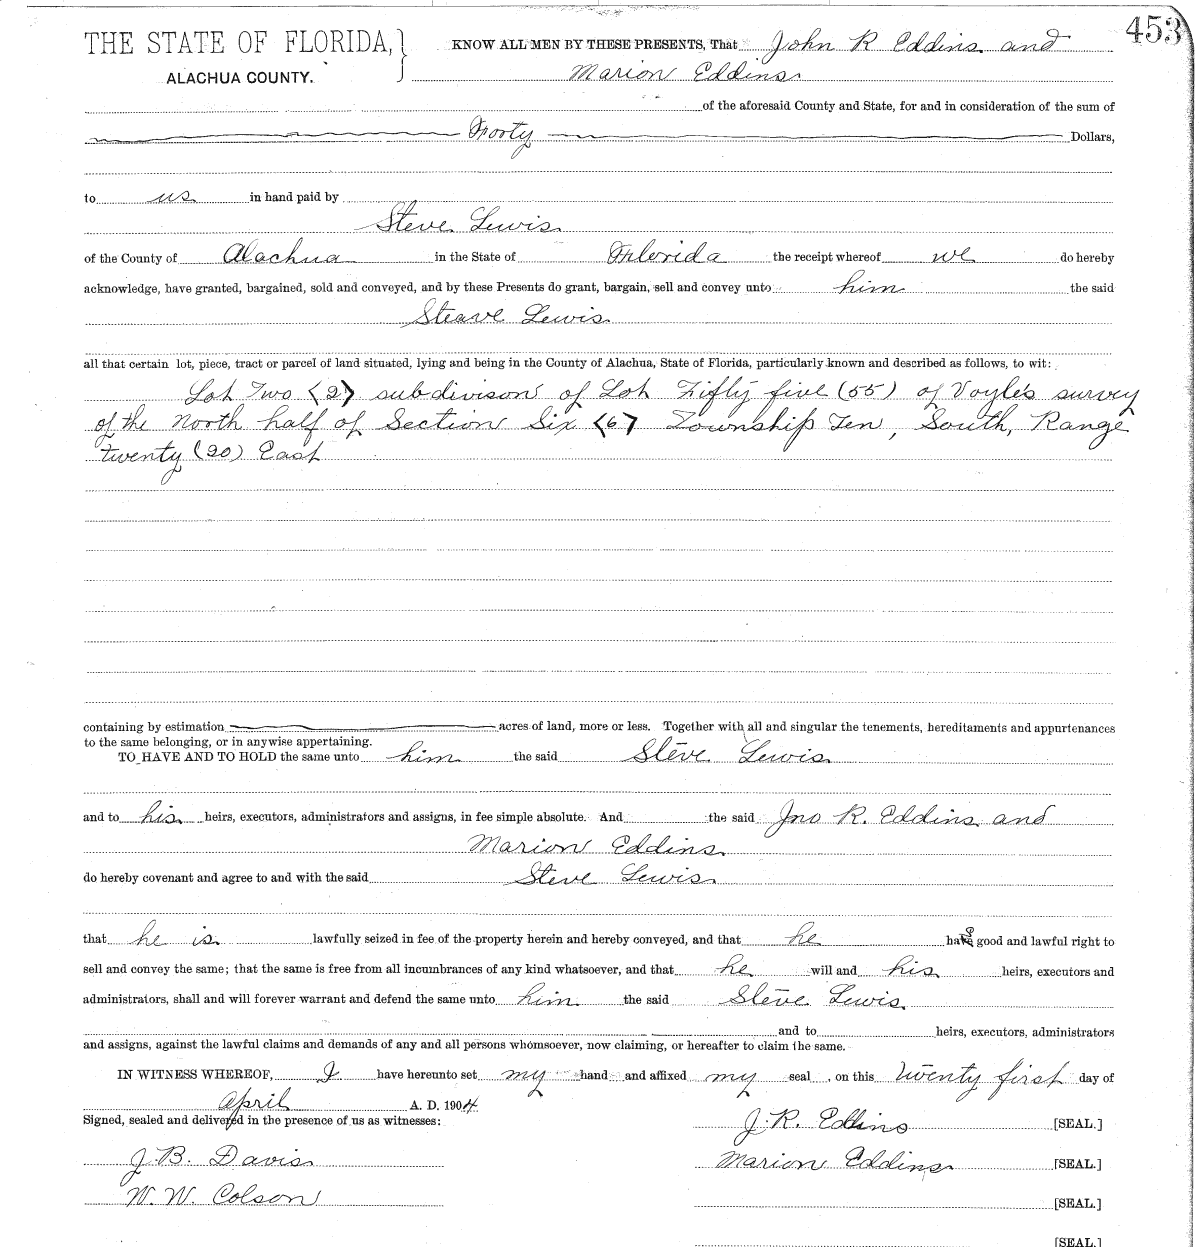 453
THE STATE OF FLORIDA, } KNOW ALL MEN BY THESE PRESENTS, That John R Eddins and
ALACHUA COUNTY. Marion Eddins
of the aforesaid County and State, for and in consideration of the sum of
Forty Dollars,
to us in hand paid by
Steve Lewis
of the County of Alachua in the State of Florida the receipt whereof we do hereby
acknowledge, have granted, bargained, sold and conveyed, and by these Presents do grant, bargain, sell and convey unto him the said
Steave Lewis
all that certain lot, piece, tract or parcel of land situated, lying and being in the County of Alachua, State of Florida, particularly known and described as follows, to wit:
Lot Two (2) subdivison of Lot Fifty five (55) of Voyle's survey
of the North half of Section Six (6) Township Ten, South, Range
twenty (20) East
containing by estimation acres of land, more or less. Together with all and singular the tenements, hereditaments and appurtenances
to the same belonging, or in anywise appertaining.
TO HAVE AND TO HOLD the same unto him the said Steve Lewis
and to his heirs, executors, administrators and assigns, in fee simple absolute. And the said Jno R. Eddins and
Marion Eddins
do hereby covenant and agree to and with the said Steve Lewis
that he is lawfully seized in fee of the property herein and hereby conveyed, and that he has good and lawful right to
sell and convey the same; that the same is free from all incumbrances of any kind whatsoever, and that he will and his heirs, executors and
administrators, shall and will forever warrant and defend the same unto him the said Steve Lewis
and to heirs, executors, administrators
and assigns, against the lawful claims and demands of any and all persons whomsoever, now claiming, or hereafter to claim the same.
IN WITNESS WHEREOF, I have hereunto set my hand and affixed my seal, on this twenty first day of
April A. D. 1904
Signed, sealed and delivered in the presence of us as witnesses:
J. R. Eddins [SEAL.]
J. B. Davis
Marion Eddins [SEAL.]
W. W. Colson
[SEAL.]
[SEAL.]